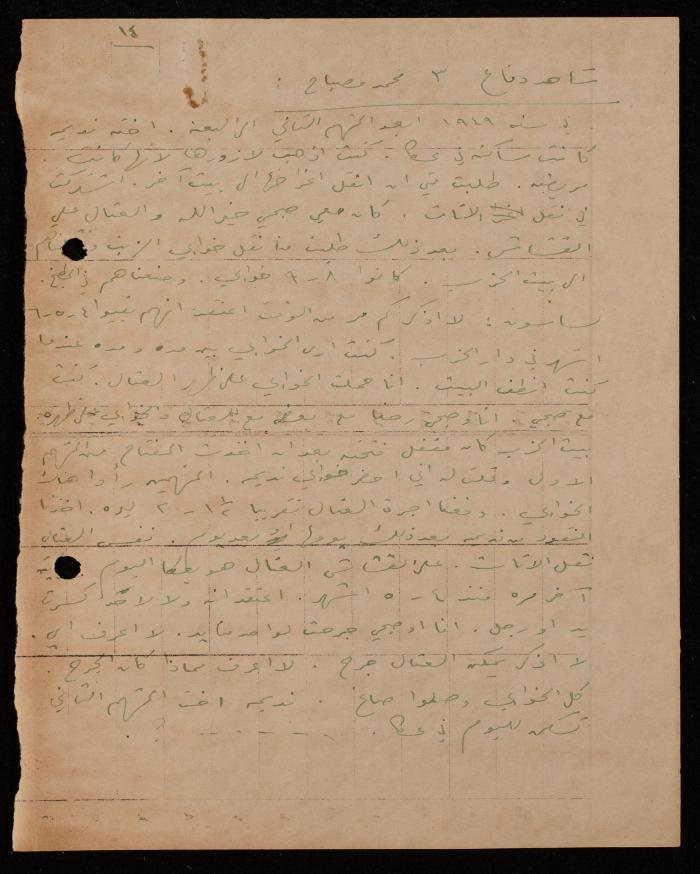 ١٤
شاهد دفاع ٣ محمد مصباح :
في سنه ١٩٤٩ ابعد المتهم الثاني الى البعنه . اخته نديمه
كانت ساكنه في عكا . كنت اذهب لازورها لانها كانت
مريضه . طلبت مني ان انقل اغراضها الى بيت آخر . اشتركت
في نقل الاثاث . كان معي صبحي خير الله والعتال علي
القشاش . بعد ذلك طلبت منا نقل خوابي الزيت
الى بيت الحزب . كانوا ٨ - ٩ خوابي . وضعناهم في المطبخ .
لساسون : لا اذكر كم مر من الوقت اعتقد انهم بقيوا ٤ - ٥ - ٦
اشهر في دار الحزب . كنت ارى الخوابي بين مده ومده عندما
كنت انظف البيت . انا حملت الخوابي على ظهر العتال . كنت
مع صبحي . انا وصبحي رحنا مع بعض مع العتال والخوابي على ظهره
بيت الحزب كان مقفل فتحته بعد ان اخذت المفتاح من المتهم
الاول وقلت له اني احضر خوابي نديمه . المتهمين رأوا هناك
الخوابي . دفعنا اجرة العتال تقريبا ١½ - ٢ ليره . اخذنا
النقود من نديمه بعد ذلك بيومها او بعد يوم . نفس العتال
نقل الاثاث . علي القشاش العتال هو بعكا اليوم .
آخر مره منذ ٤ - ٥ اشهر . اعتقد انه ولا لاحد كسرت
يد او رجل . انا او صبحي جرحت لواحد منا يد . لا اعرف اي .
لا اذكر يمكن العتال جرح . لا اعرف مماذا كان الجرح .
كل الخوابي وصلوا صاغ . نديمه اخت المتهم الثاني
تسكن لليوم في عكا .